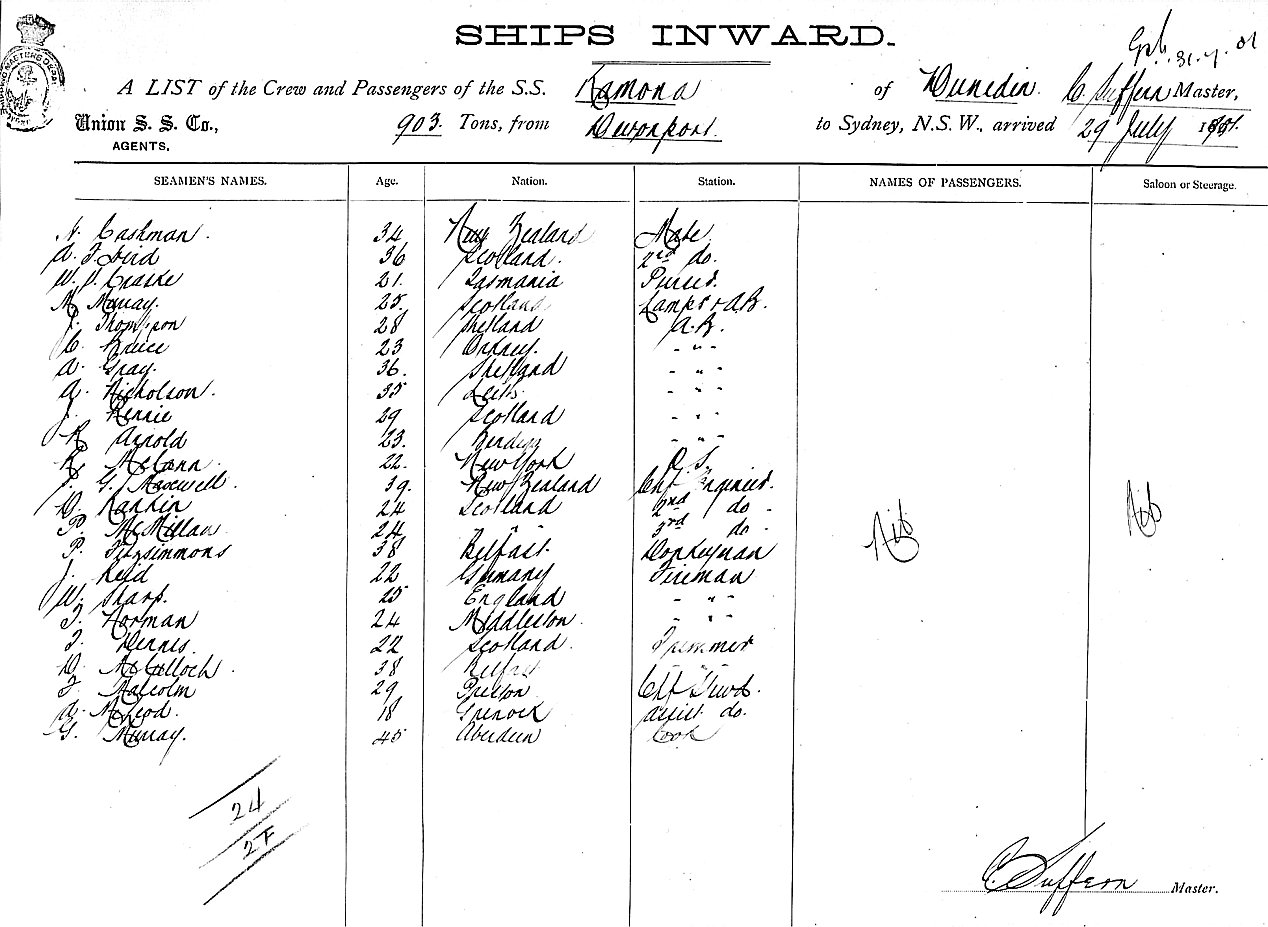 SHIPS INWARD.
31.7.01
A LIST of the Crew and Passengers of the S.S. Kamona of Dunedin. C. Suffern Master,
Union S. S. Co., 903. Tons, from Devonport. to Sydney, N.S.W., arrived 29 July 1901.
AGENTS,
SEAMEN'S NAMES. Age. Nation. Station. NAMES OF PASSENGERS. Saloon or Steerage.
N. Cashman. 34 New Zealand Mate
A. F. 36 Scotland. 2nd do.
W. 21. Tasmania Purser.
M. Murray. 25. Scotland Lamps & A.B.
J. Thompson 28 Shetland A.B.
C. Bruce 23 Orkney. - " -
A. Gray. 36. Shetland - " -
A. Nicholson. 35 Leith. - " -
J. Rennie 29 Scotland - " -
Arnold 23. - " -
McCann. 22. New York O.S.
G. Maxwell. 39. New Zealand Chf Engineer.
D. Rankin 24 Scotland 2nd do -
P. McMillan 24 " " 3rd do
P. Fitzsimmons 38 Belfast. Donkeyman
J. Reid 22 Germany Fireman
W. Sharp. 25 England - " -
Norman 24 Middleton. - " -
Dennis. 22 Scotland. Trimmer
D. McCulloch. 38 Belfast - " -
Malcolm 29 Chf Stewd.
A. McLeod. 18 Greenock assist. do.
G. Murray. 45 Aberdeen Cook
Nil Nil
24
27
C. Suffern Master.